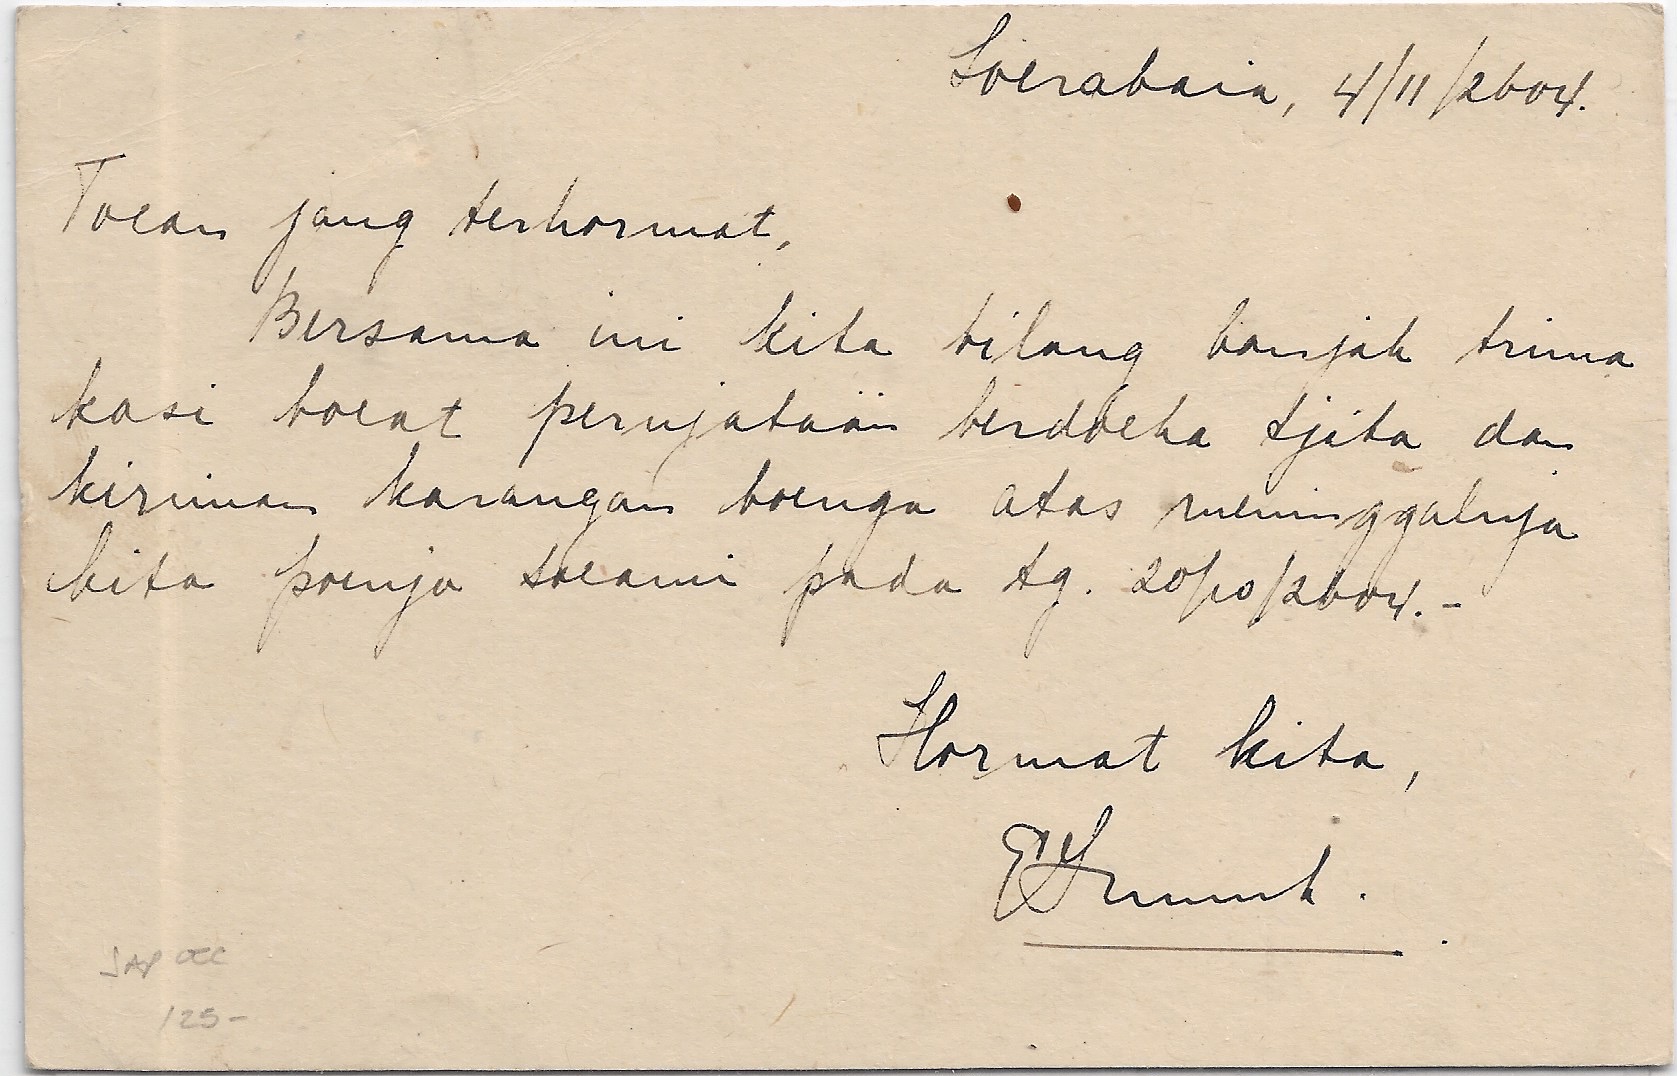 Soerabaia, 4/11/2604.
Toean jang terhormat,
Bersama ini kita bilang banjak trima
kasi boeat pernjataän berdoeka tjita dan
kiriman karangan boenga atas meninggalnja
kita poenja soeami pada tg. 20/10/2604.-
Hormat kita,
JAP OCC
125-